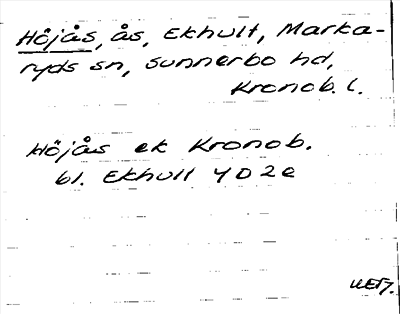 Höjås, ås, Ekhult, Marka-
ryds sn, Sunnerbo hd,
Kronob. l.
Höjås ek Kronob.
bl. Ekhult 4D2e